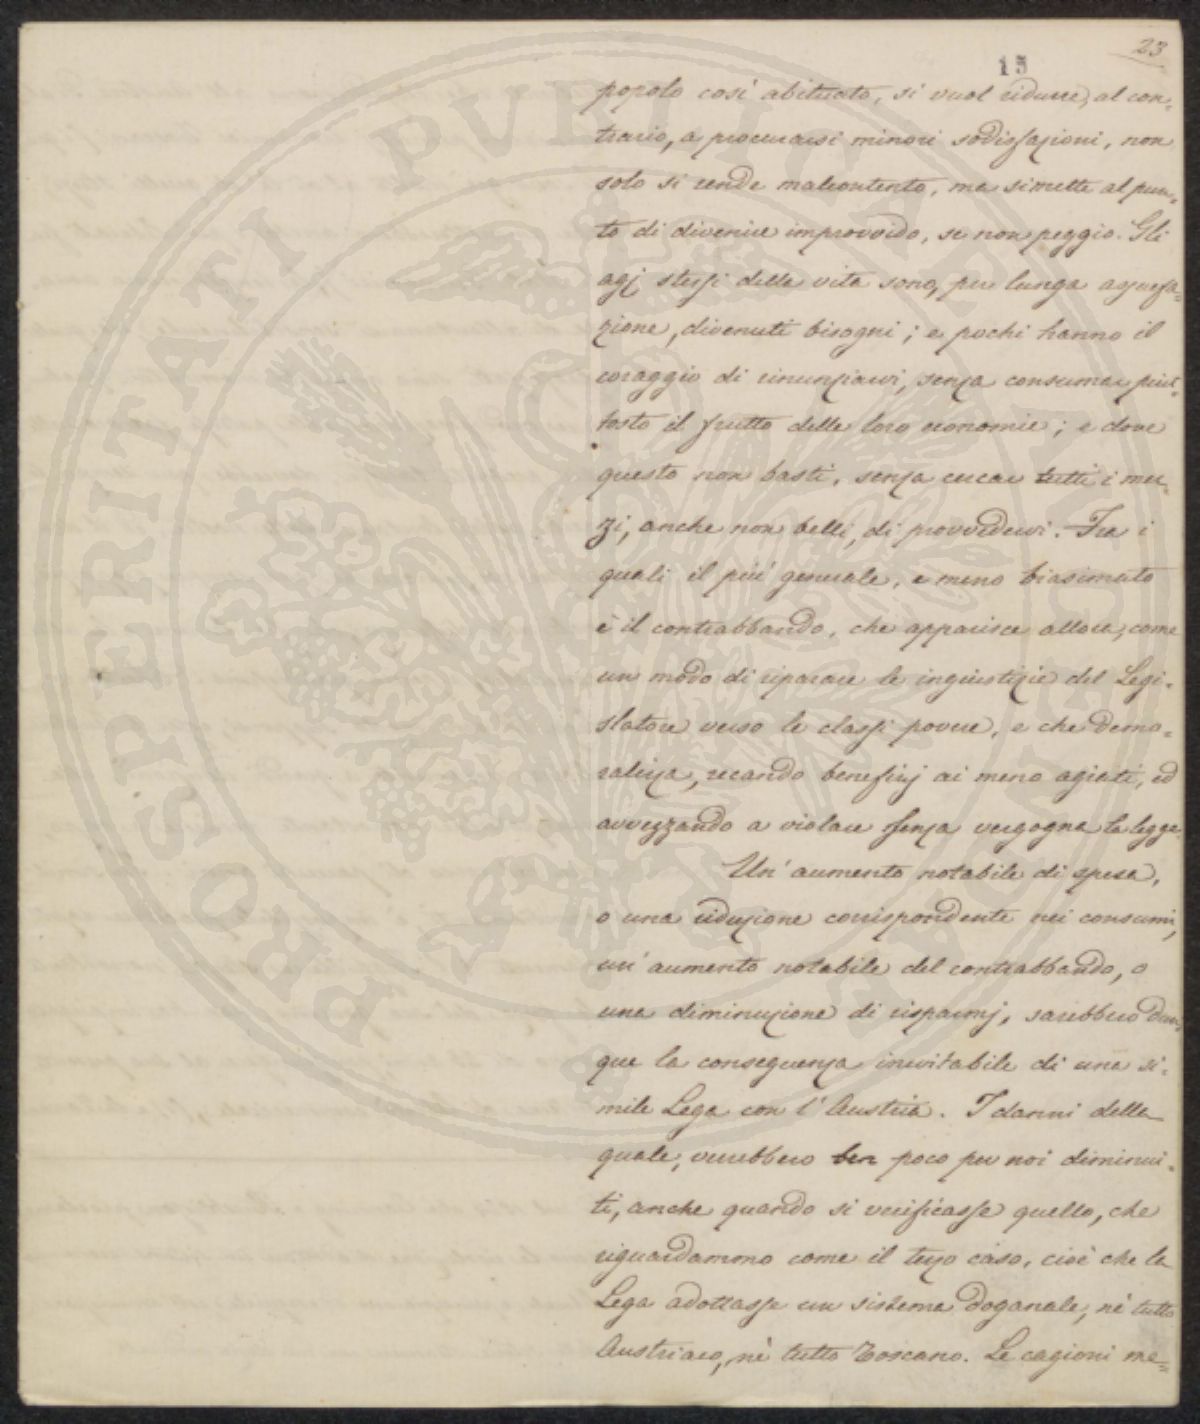 23
15
popolo così abituato, si vuol ridurre, al con-
trario, a procurarsi minori sodisfazioni, non
solo si rende malcontento, ma si mette al pun-
to di divenire improvvido, se non peggio. Gli
agj stessi della vita sono, per lunga assuefa-
zione, divenuti bisogni; e pochi hanno il
coraggio di rinunziarvi, senza consumar piut-
tosto il frutto delle loro economie; e dove
questo non basti, senza cercar tutti i mez-
zi, anche non belli, di provvedervi. Fra i
quali il più generale, e meno biasimato
è il contrabbando, che apparisce allora, come
un modo di riparare le ingiustizie del Legi-
slatore verso le classi povere, e che demo-
ralizza, recando benefizj ai meno agiati, ed
avvezzando a violare senza vergogna la legge.
Un' aumento notabile di spesa,
o una riduzione corrispondente nei consumi,
un' aumento notabile del contrabbando, o
una diminuzione di risparmj, sarebbero dun-
que la conseguenza inevitabile di una si-
mile Lega con l' Austria. I danni della
quale, verrebbero ben poco per noi diminui-
ti, anche quando si verificasse quello, che
riguardammo come il terzo caso, cioè che la
Lega adottasse un sistema doganale, nè tutto
Austriaco, nè tutto Toscano. Le cagioni me-
PROSPERITATI PVBLICAE